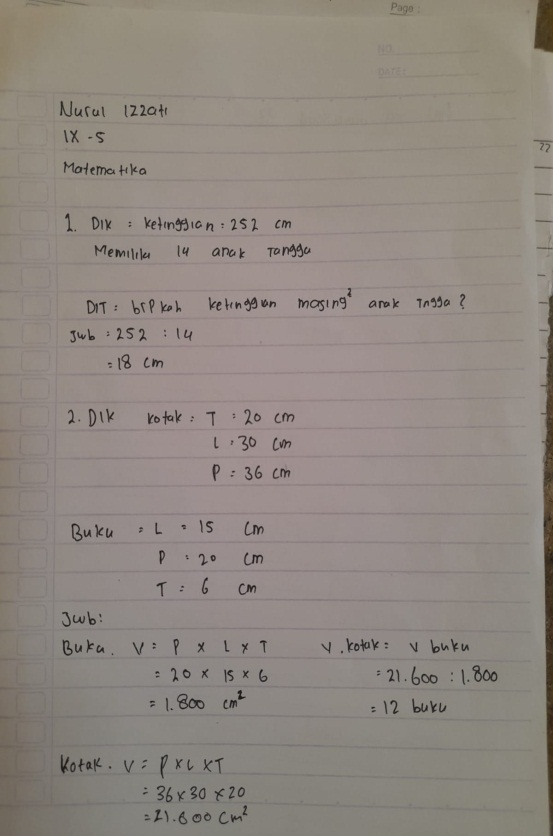 Page :
NO.
DATE:
Nurul Izzati
IX - 5
Matematika
1. Dik : ketinggian : 252 cm
Memilika 14 anak Tangga
DIT : brp kah ketinggian masing² anak Tngga ?
Jwb : 252 : 14
= 18 cm
2. DIK kotak : T : 20 cm
L : 30 cm
P = 36 cm
Buku = L = 15 cm
P : 20 cm
T : 6 cm
Jwb:
Buku. V = P x L x T
= 20 x 15 x 6
= 1.800 cm²
V. kotak : V buku
= 21.600 : 1.800
= 12 buku
Kotak. V = P x L x T
= 36 x 30 x 20
= 21.600 cm²
22